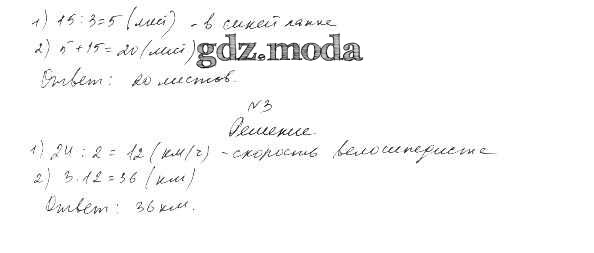 1) 15 : 3 = 5 (лис) - в синей папке
2) 5 + 15 = 20 (лис)
gdz.moda
Ответ: 20 листов.
№3
Решение.
1) 24 : 2 = 12 (км/ч) - скорость велосипедиста
2) 3 · 12 = 36 (км)
Ответ: 36 км.